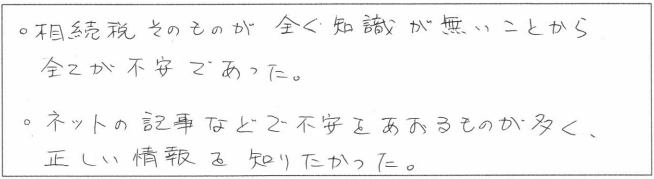 。相続税そのものが全く知識が無いことから
全てが不安であった。
。ネットの記事などで不安をあおるものが多く、
正しい情報を知りたかった。